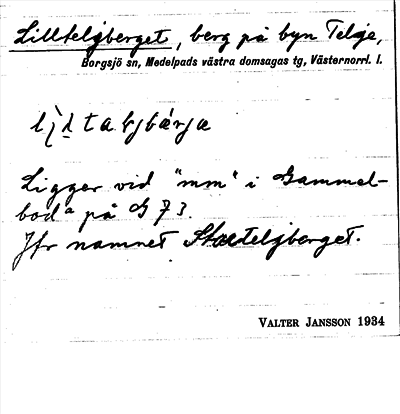 Lilltelgberget, berg på byn Telge,
Borgsjö sn, Medelpads västra domsagas tg, Västernorrl. l.
Ligger vid "mm" i Gammel-
boda på G 73.
Jfr namnet Stortelgberget.
VALTER JANSSON 1934